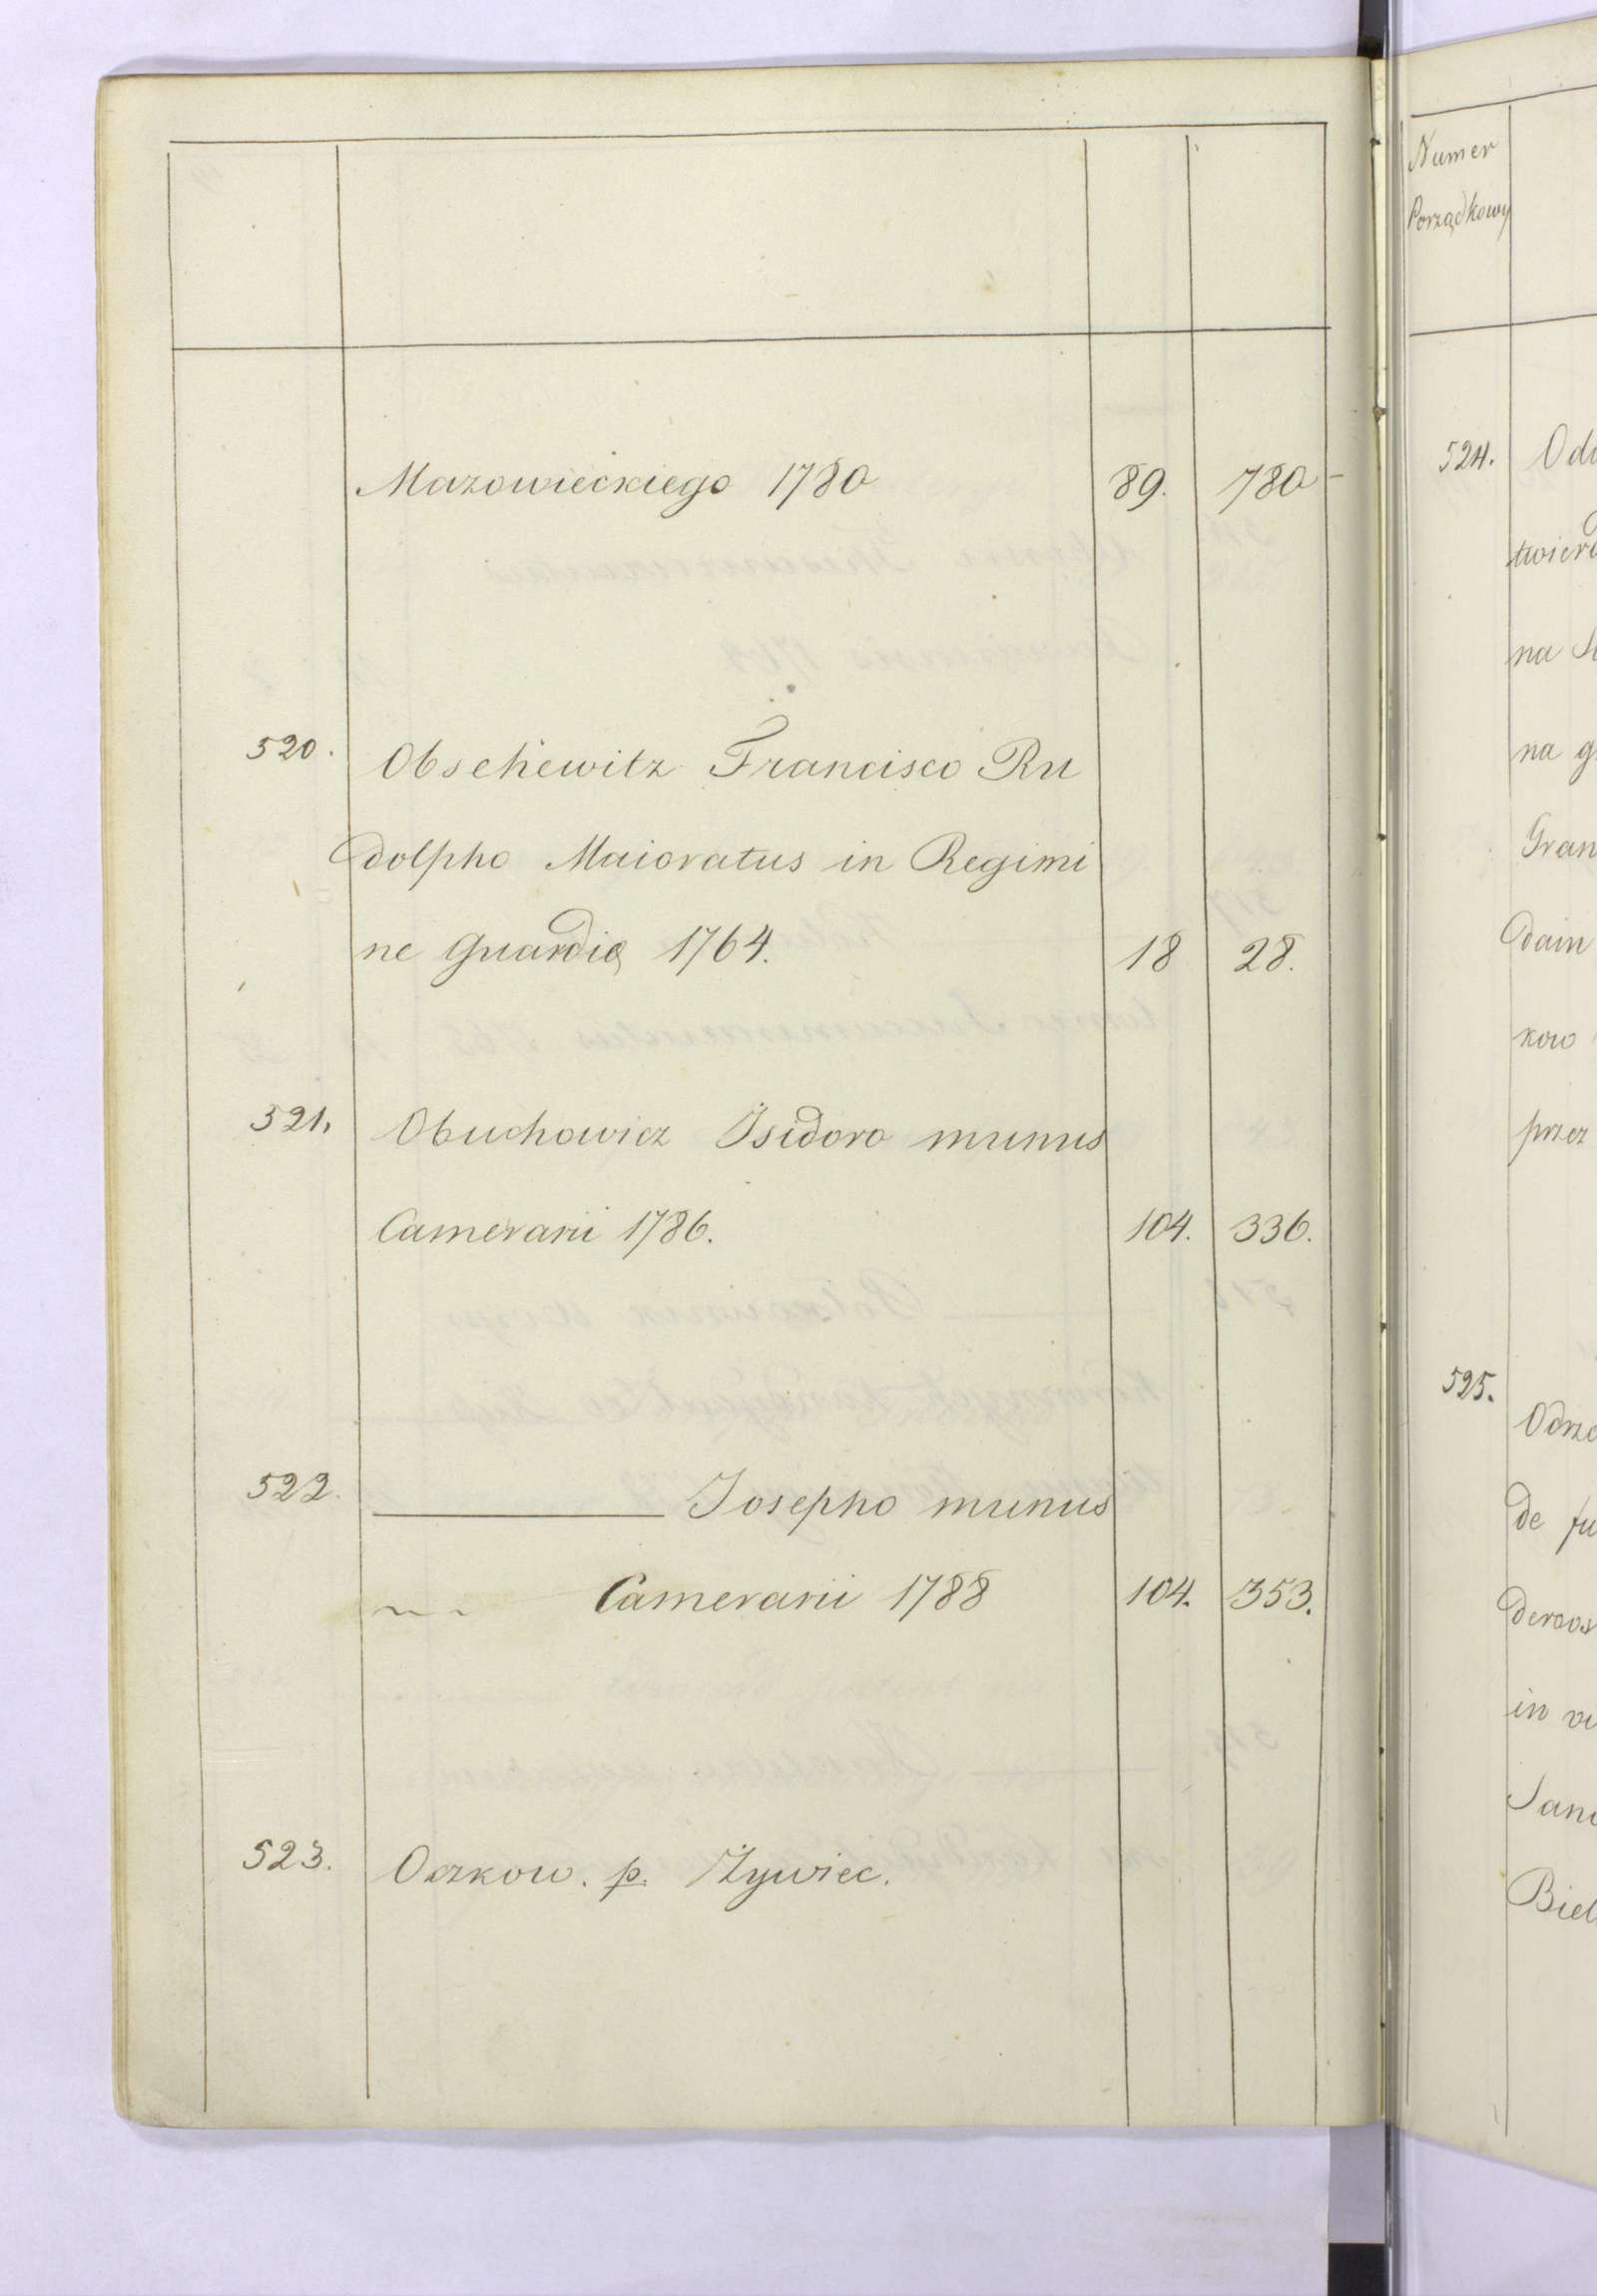 Mazowieckiego 1780 89. 780
520. Obschewitz Francisco Ru
dolpho Maioratus in Regimi
ne Guardię 1764. 18 28.
521. Obuchowicz Isidoro munus
Camerarii 1786. 104. 336.
522. ——— Josepho munus
Camerarii 1788 104. 353.
523. Oczkow. p. Żywiec.
Numer
Porządkowy
524. Od
twierd
na
na g
Gran
dain
kow
przez
525.
Odrz
de fu
in
San
Biel